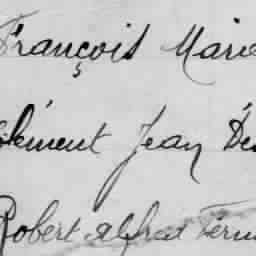 François Marie
Clément Jean Dés
Robert Alfred Fern